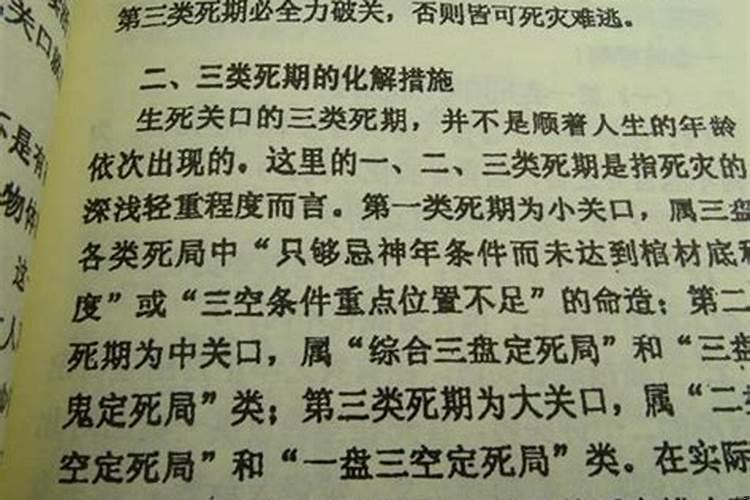 第三类死期必全力破关，否则皆可死灾难逃。
二、三类死期的化解措施
生死关口的三类死期，并不是顺着人生的年龄
依次出现的。这里的一、二、三类死期是指死灾的
深浅轻重程度而言。第一类死期为小关口，属三盘
各类死局中“只够忌神年条件而未达到棺材底和
度”或“三空条件重点位置不足”的命造；第二
死期为中关口，属“综合三盘定死局”和“三盘
鬼定死局”类；第三类死期为大关口，属“二盘
空定死局”和“一盘三空定死局”类。在实际